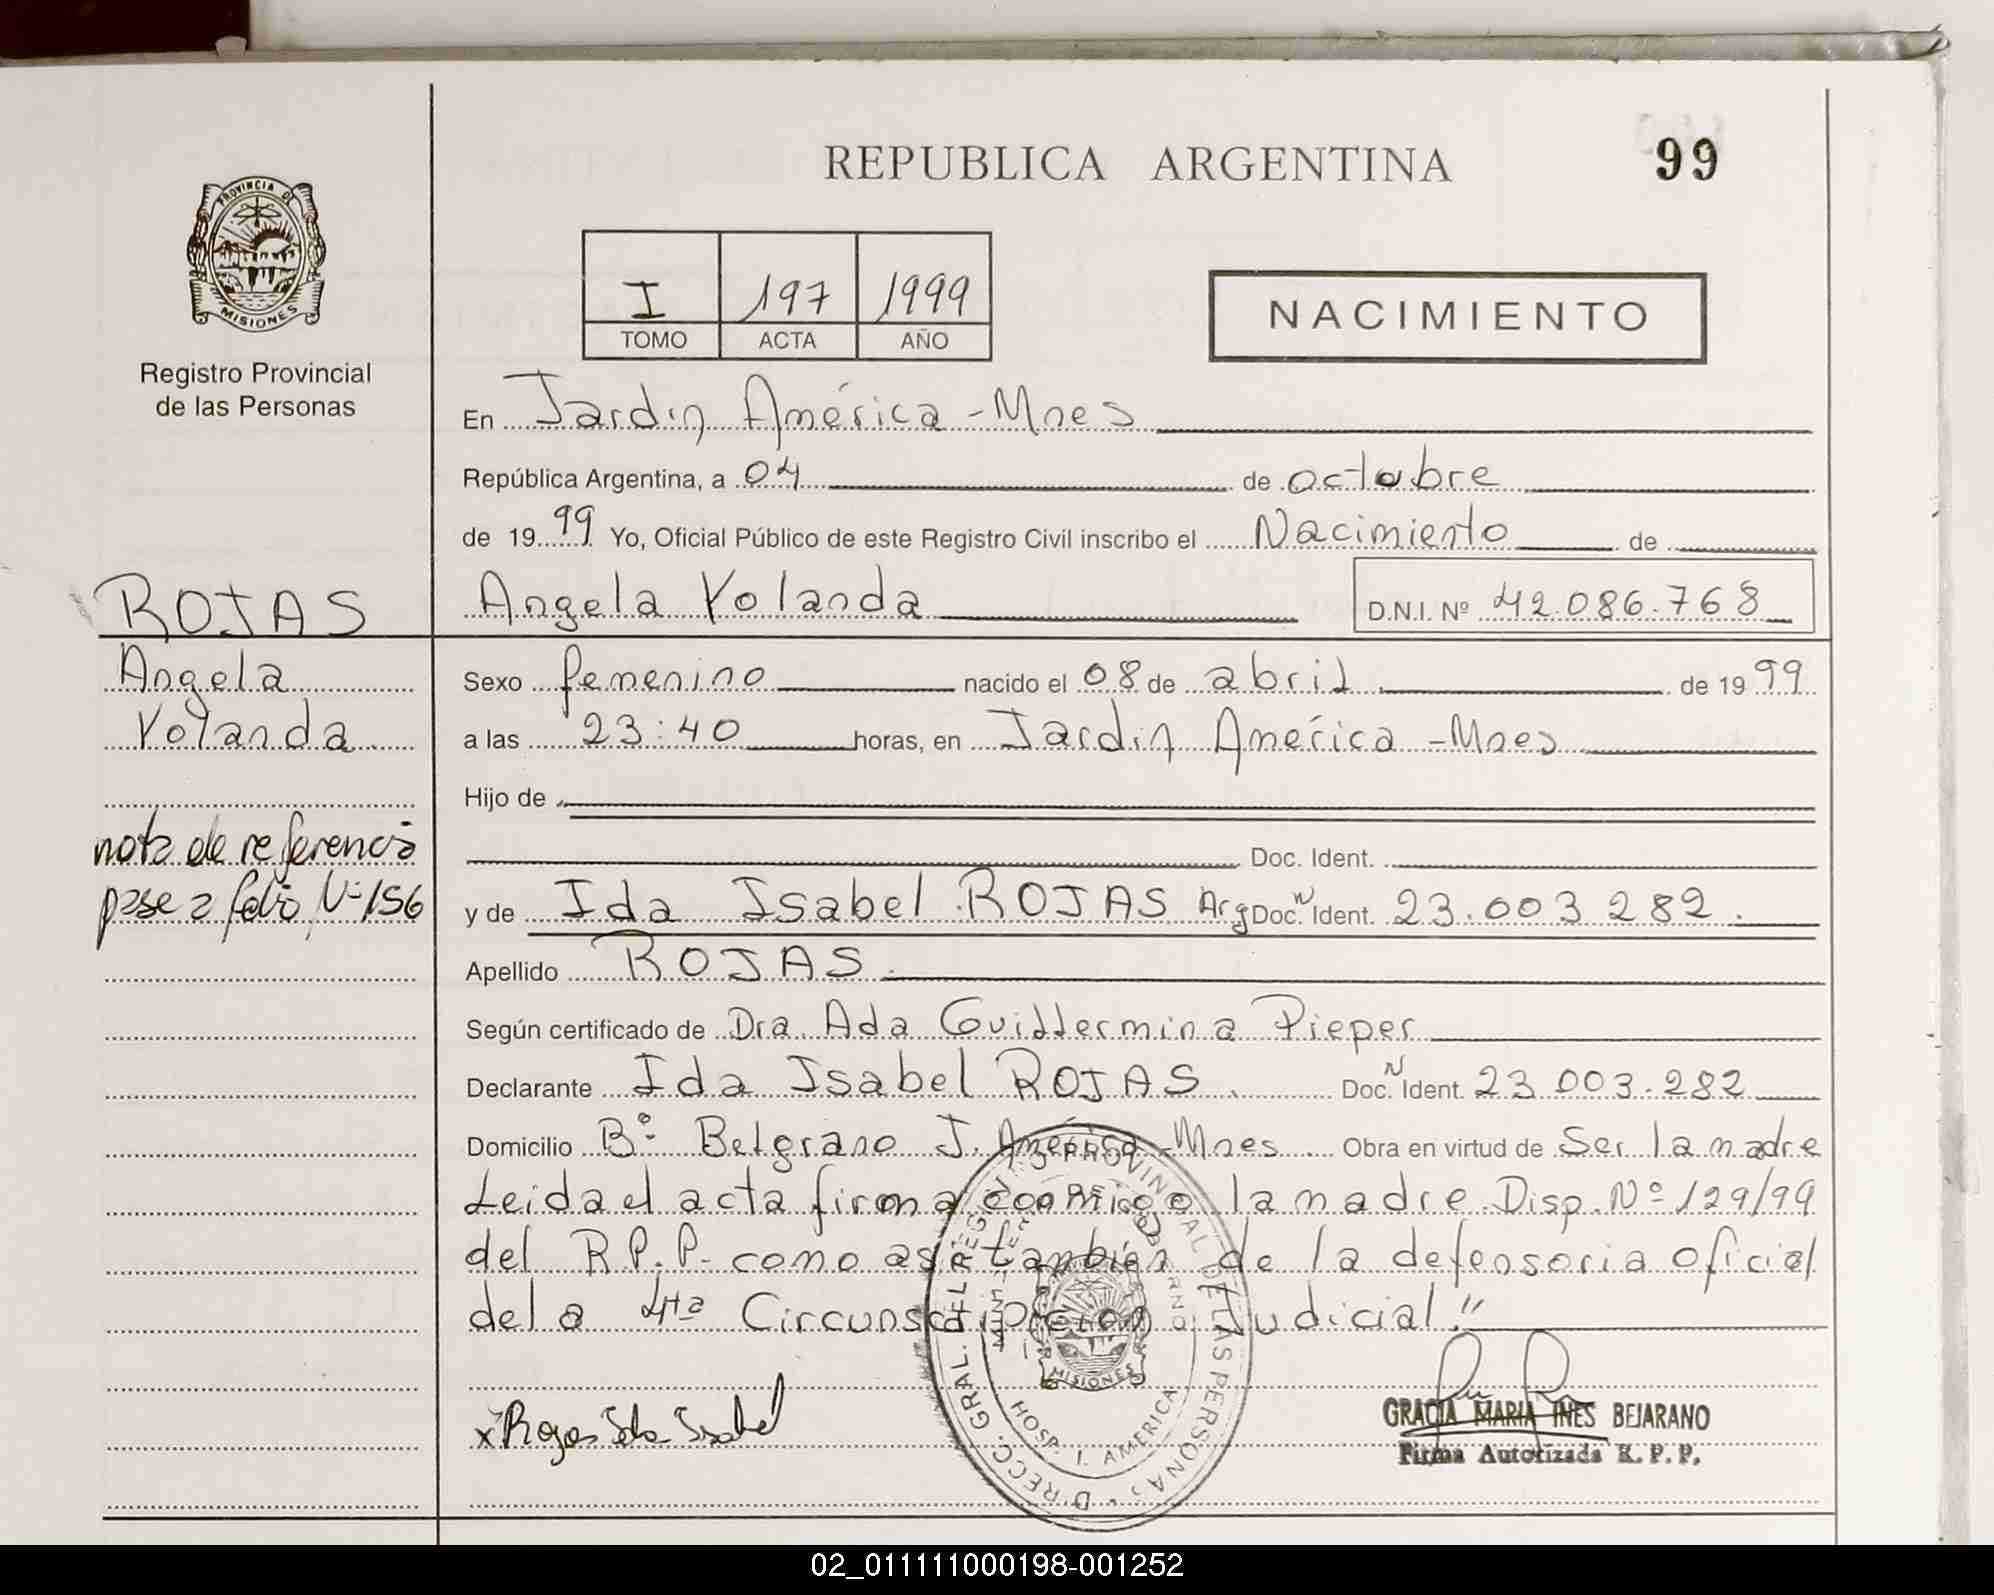 REPUBLICA ARGENTINA
99
PROVINCIA DE
MISIONES
Registro Provincial
de las Personas
I 197 1999
TOMO ACTA AÑO
NACIMIENTO
En Jardin América - Mnes
República Argentina, a 04 de octubre
de 1999 Yo, Oficial Público de este Registro Civil inscribo el Nacimiento de
Angela Yolanda D.N.I. Nº 42.086.768
ROJAS
Angela
Yolanda
nota de referencia
pase a folio Nº 156
Sexo femenino nacido el 08 de abril de 1999
a las 23:40 horas, en Jardin América - Mnes
Hijo de
Doc. Ident.
y de Ida Isabel ROJAS Arg Doc. N Ident. 23.003 282.
Apellido ROJAS
Según certificado de Dra. Ada Guillermina Pieper
Declarante Ida Isabel ROJAS. Doc. N Ident. 23 003.282
Domicilio Bº Belgrano J. América - Mnes Obra en virtud de Ser la madre
Leida el acta firma conmigo la madre. Disp. Nº 129/99
del R.P.P. como asi también de la defensoria oficial
dela 4ta Circunscripcion Judicial."
x Rojas Ida Isabel
DIRECC. GRAL. DEL REGISTRO PROVINCIAL DE LAS PERSONAS
MISIONES
HOSP. I. AMERICA
GRACIA MARIA INES BEJARANO
Firma Autorizada R. P. P.
02_011111000198-001252